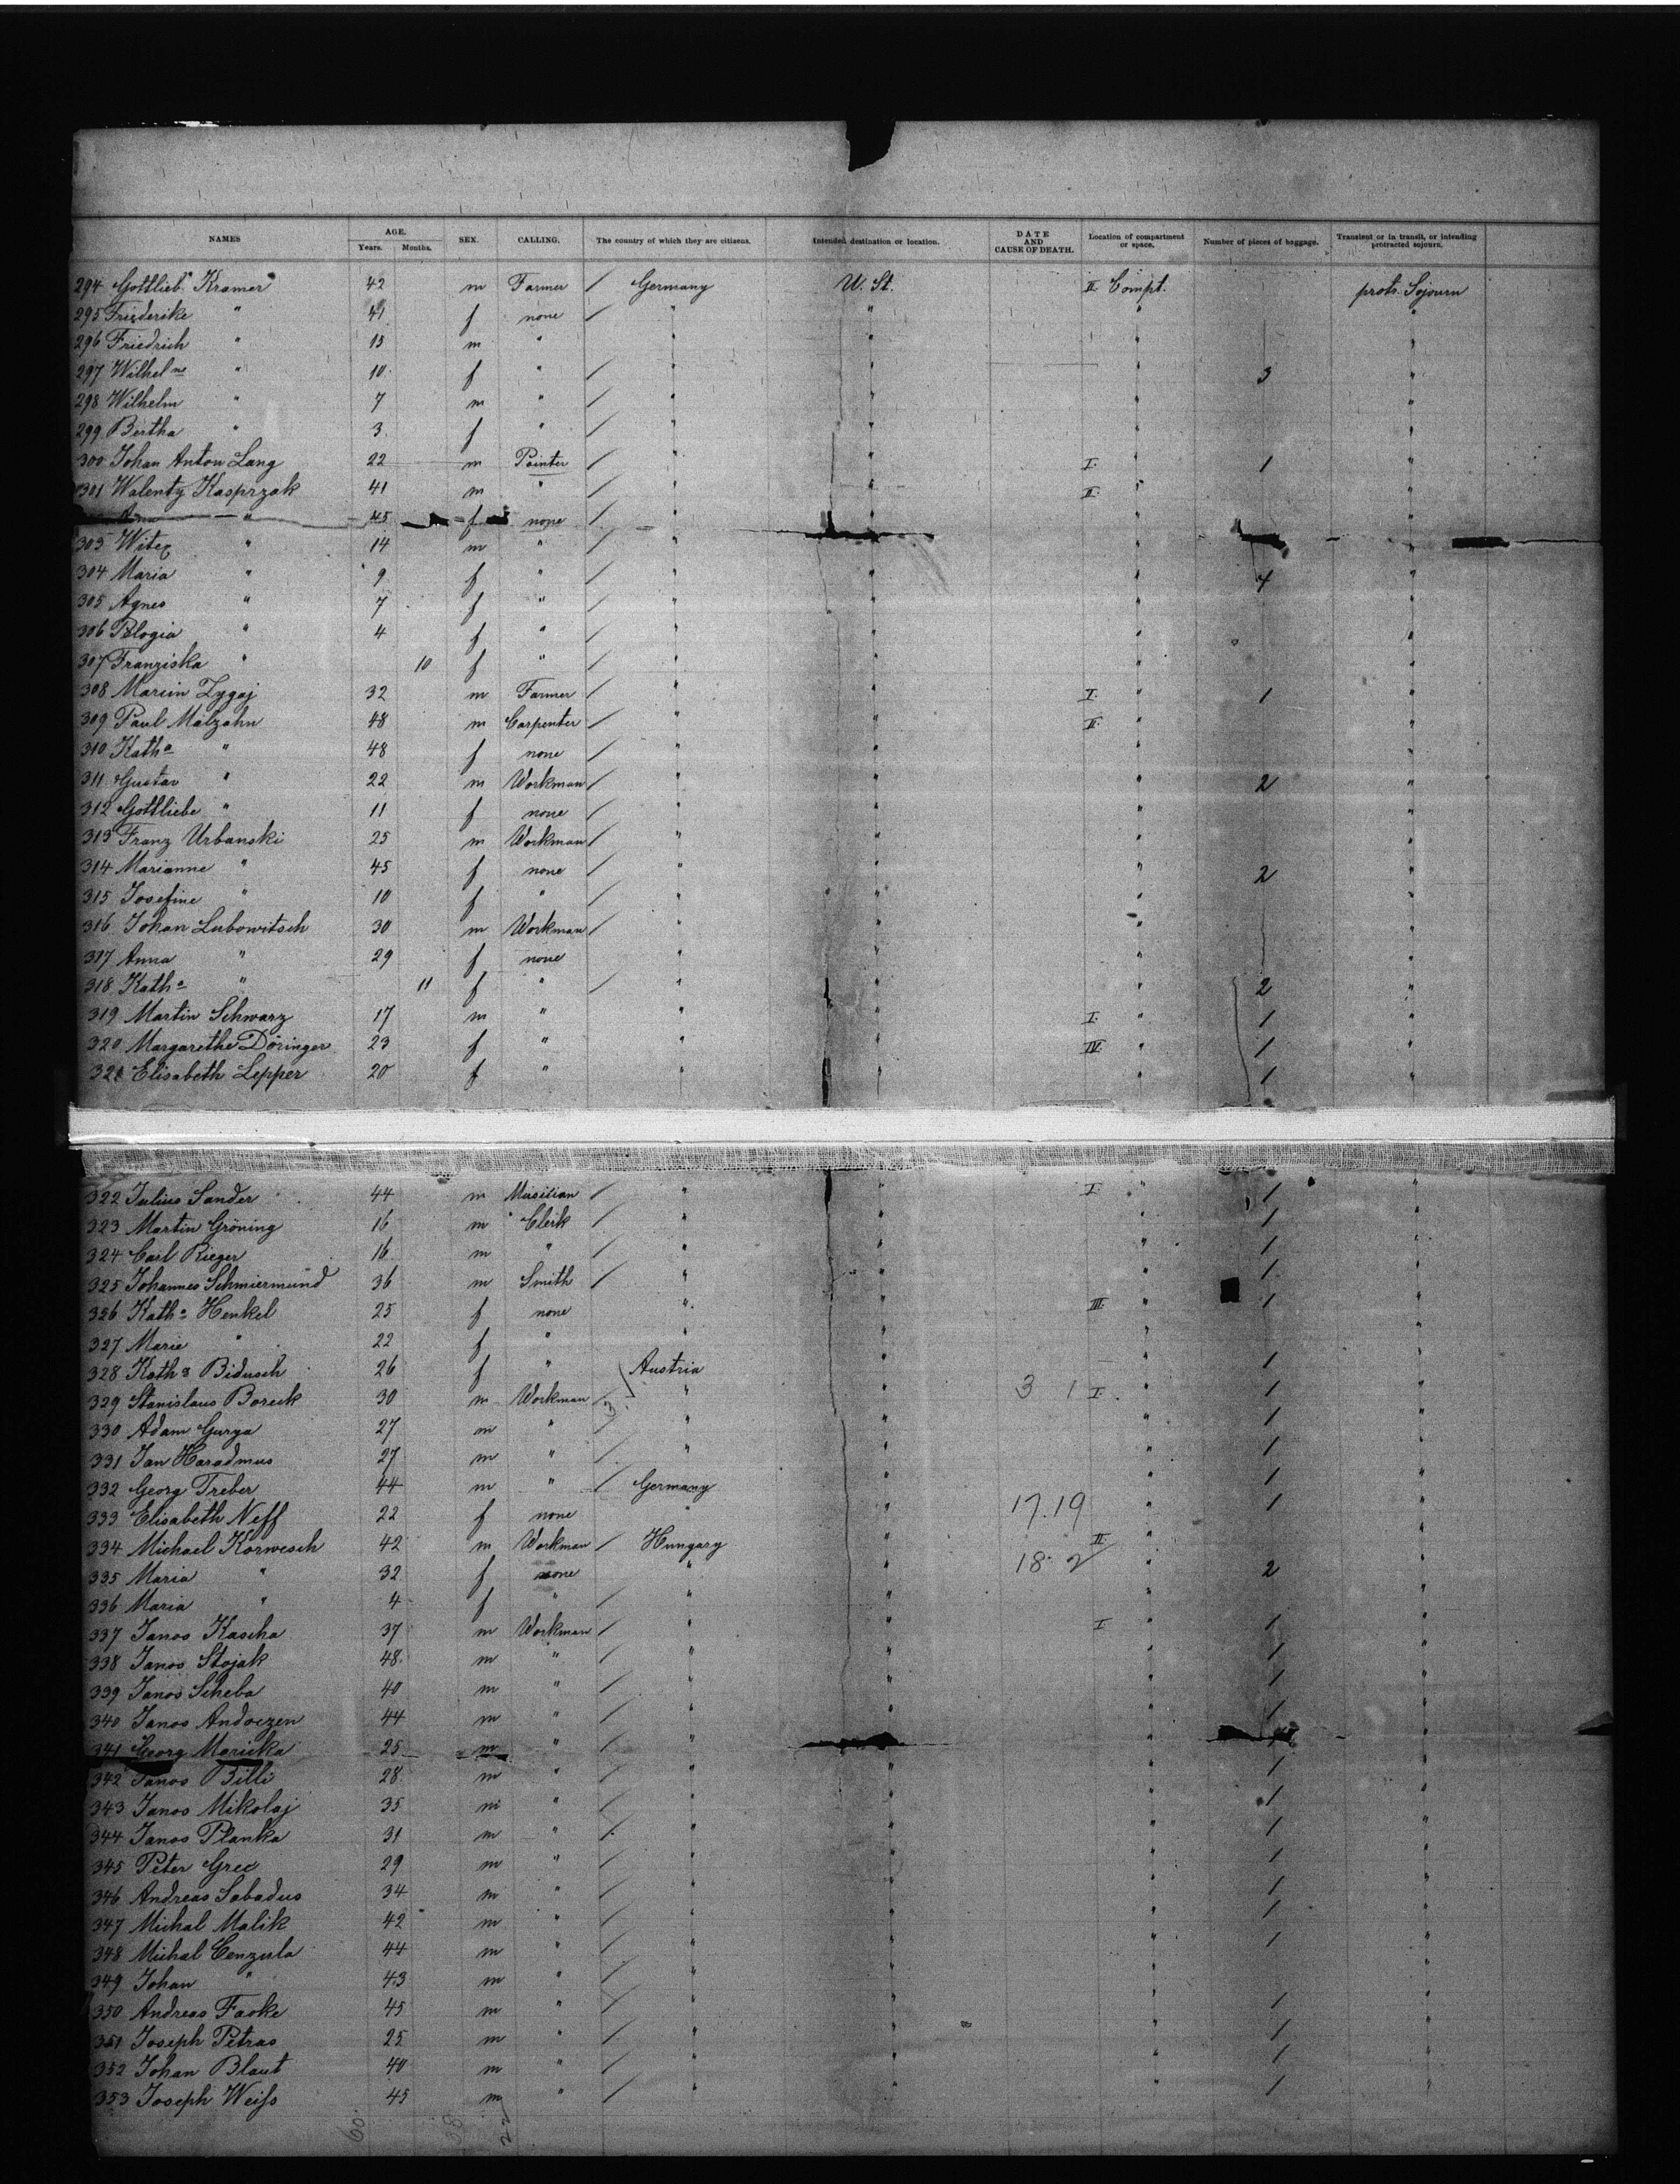 NAMES AGE. Years. Months. SEX. CALLING. The country of which they are citizens. Intended destination or location. DATE AND CAUSE OF DEATH. Location of compartment or space. Number of pieces of baggage. Transient or in transit, or intending protracted sojourn.
294 Gottlieb Kramer 42 m Farmer / Germany U. St. II Compt. protr. Sojourn
295 Friederike " 41 f none / " " " "
296 Friedrich " 15 m " " " " "
297 Wilhelne " 10 f " / " " " 3 "
298 Wilhelm " 7 m " / " " " "
299 Bertha " 3 f " / " " " "
300 Johan Anton Lang 22 m Painter / " " I " 1 "
301 Walenty Kasprzak 41 m " / " " II " "
" 45 f none / " " " "
303 " 14 m " / " " " "
304 Maria " 9 f " / " " " 4 "
305 Agnes " 7 f " / " " " "
306 Pelogia " 4 f " / " " " "
307 Franziska " 10 f " / " " " "
308 Marcin Zygaj 32 m Farmer / " " I " 1 "
309 Paul Malzahn 48 m Carpenter / " " II " "
310 Katha " 48 f none / " " " "
311 Gustav " 22 m Workman / " " " 2 "
312 Gottliebe " 11 f none / " " " "
313 Franz Urbanski 25 m Workman / " " " "
314 Marianne " 45 f none / " " " 2 "
315 Josefine " 10 f " / " " " "
316 Johan Lubowitsch 30 m Workman / " " " "
317 Anna " 29 f none " " " "
318 Katha " 11 f " / " " " 2 "
319 Martin Schwarz 17 m " " " I " 1 "
320 Margarethe Döringer 23 f " " " IV " 1 "
321 Elisabeth Lepper 20 f " " " " 1 "
322 Julius Sander 44 m Musitian / " " I " 1 "
323 Martin Gröning 16 m Clerk / " " " 1 "
324 Carl Rieger 16 m " / " " " 1 "
325 Johannes Schmiermund 36 m Smith / " " " 1 "
326 Katha Henkel 25 f none " " III " 1 "
327 Marie " 22 f " " " " "
328 Katha Bidusch 26 f " Austria " " 1 "
329 Stanislaus Boreck 30 m Workman / " " 3 1 I " 1 "
330 Adam Gurga 27 m " / " " " 1 "
331 Jan Haradmus 27 m " / " " " 1 "
332 Georg Treber 44 m " / Germany " " 1 "
333 Elisabeth Neff 22 f none " " 17.19 " 1 "
334 Michael Korwesch 42 m Workman / Hungary " II " "
335 Maria " 32 f none " " 18.2 " 2 "
336 Maria " 4 f " / " " " "
337 Janos Kascha 37 m Workman / " " I " 1 "
338 Janos Stojak 48 m " / " " " 1 "
339 Janos Scheba 40 m " / " " " 1 "
340 Janos Andoczen 44 m " / " " " 1 "
341 Georg Maricka 25 m " / " " "
342 Janos Billi 28 m " / " " " 1 "
343 Janos Mikolaj 35 m " / " " " 1 "
344 Janos Planka 31 m " / " " " 1 "
345 Peter Grec 29 m " / " " " 1 "
346 Andreas Sabadus 34 m " / " " " 1 "
347 Michal Malik 42 m " / " " " 1 "
348 Michal Cenzula 44 m " / " " " 1 "
349 Johan " 43 m " / " " " "
350 Andreas Facke 45 m " / " " " 1 "
351 Joseph Petras 25 m " / " " " 1 "
352 Johan Blaut 40 m " / " " " 1 "
353 Joseph Weiss 45 m " / " " " 1 "
60. 38 22